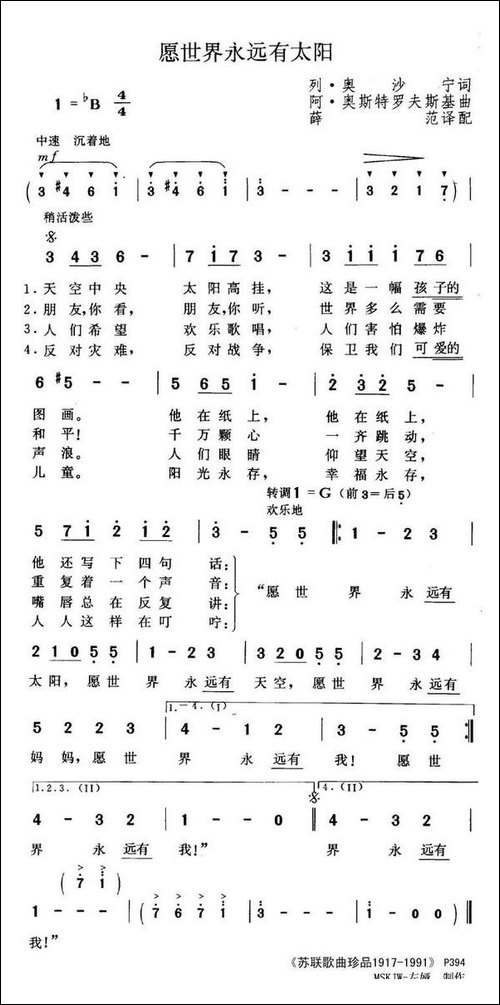 愿世界永远有太阳
列·奥沙宁词
1=♭B 4/4
阿·奥斯特罗夫斯基曲
薛范译配
中速 沉着地
mf
(3 #4 6 1 | 3 #4 6 1 | 3 - - - | 3 2 1 7)
稍活泼些
3 4 3 6 - | 7 1 7 3 - | 3 1 1 1 7 6 |
1.天空中央 太阳高挂, 这是一幅孩子的
2.朋友,你看, 朋友,你听, 世界多么需要
3.人们希望 欢乐歌唱, 人们害怕爆炸
4.反对灾难, 反对战争, 保卫我们可爱的
6 #5 - - | 5 6 5 1 - | 2 3 2 5 - |
图画。 他在纸上, 他在纸上,
和平! 千万颗心 一齐跳动,
声浪。 人们眼睛 仰望天空,
儿童。 阳光永存, 幸福永存,
转调1=G(前3=后5)
欢乐地
5 7 1 2 1 2 | 3 - 5 5 |: 1 - 2 3 |
他还写下四句话:
重复着一个声音:
嘴唇总在反复讲:
人人这样在叮咛:
“愿世界永远有
2 1 0 5 5 | 1 - 2 3 | 3 2 0 5 5 | 2 - 3 4 |
太阳,愿世界永远有天空,愿世界永远有
1.-4.(I)
5 2 2 2 | 4 - 1 2 | 3 - 5 5 :|
妈妈,愿世界永远有我!愿世
1.2.3.(II) 4.(II)
4 - 3 2 | 1 - - 0 || 4 - 3 2 |
界永远有我!” 界永远有
(7 1)
1 - - - | (7 6 7 1 | 3 - - -) | 1 - - - ||
我!”
《苏联歌曲珍品1917-1991》 P394